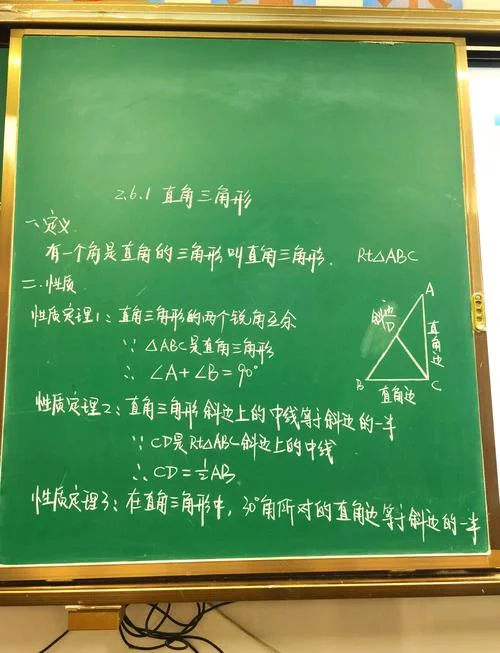 2.6.1 直角三角形
一.定义
有一个角是直角的三角形叫直角三角形. Rt△ABC
二.性质
性质定理1: 直角三角形的两个锐角互余
∵ △ABC是直角三角形
∴ ∠A+∠B=90°
A
斜边
D
直角边
B
C
直角边
性质定理2: 直角三角形斜边上的中线等于斜边的一半
∵CD是Rt△ABC斜边上的中线
∴ CD=½AB
性质定理3: 在直角三角形中, 30°角所对的直角边等于斜边的一半